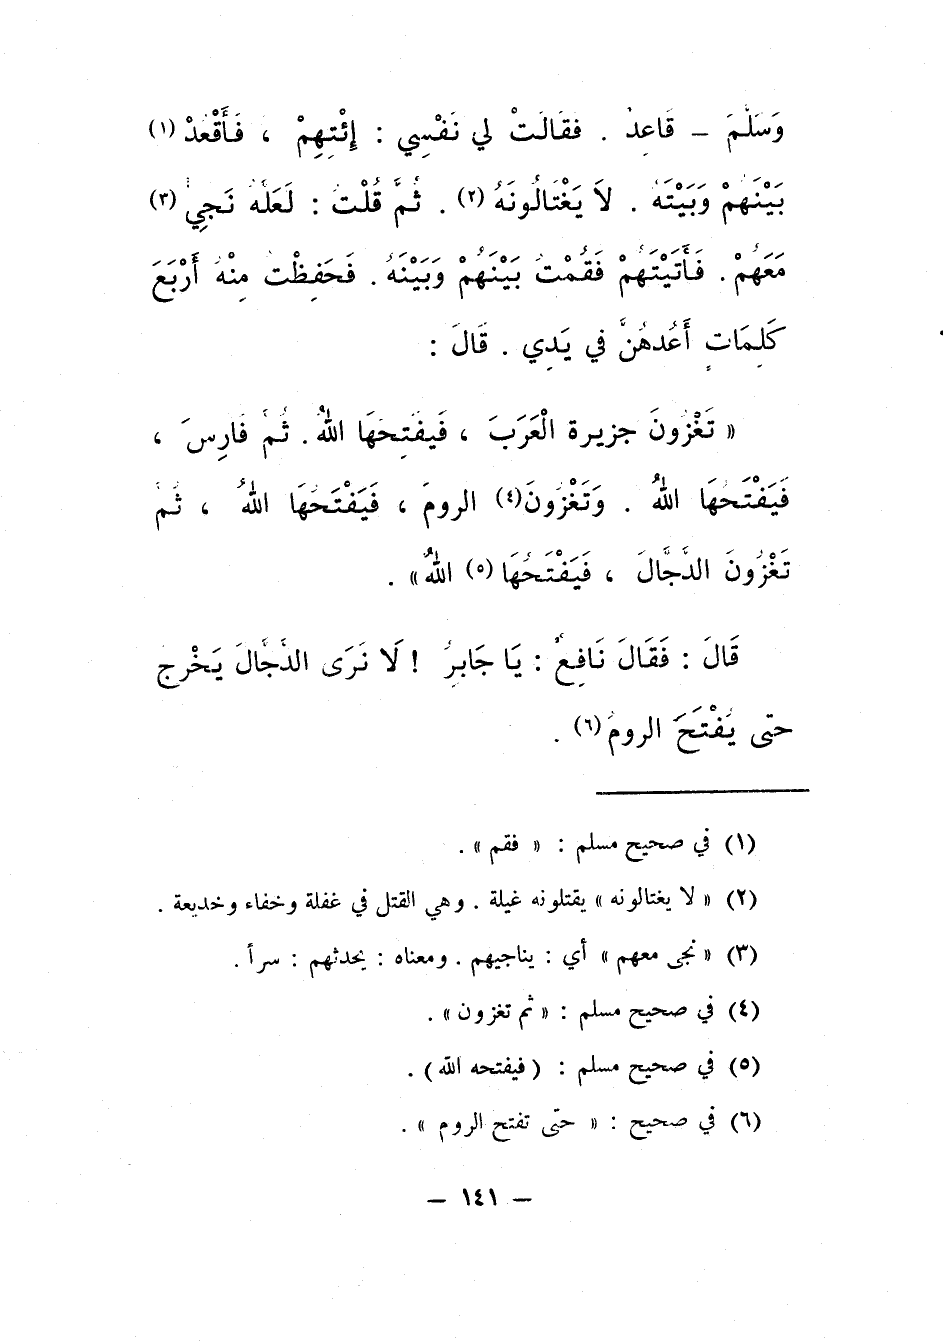 وَسَلَّمَ – قَاعِدٌ . فقَالَتْ لي نَفْسِي : إِئْتِهِمْ ، فَأَقْعُدْ (١)
بَيْنَهُمْ وَبَيْتَهُ . لاَ يَغْتَالُونَهُ (٢) . ثُمَّ قُلْتُ : لَعَلَّهُ نَجِيٌ (٣)
مَعَهُمْ . فَأَتَيْتَهُمْ فَقُمْتُ بَيْنَهُمْ وَبَيْنَهُ . فَحَفِظْتُ مِنْهُ أَرْبَعَ
كَلِمَاتٍ أَعُدهُنَّ في يَدِي . قَالَ :
« تَغْزُونَ جزيرة الْعَرَبَ ، فَيفتِحهَا اللهُ . ثُمَّ فَارِسَ ،
فَيَفْتَحُهَا اللهُ . وَتَغْزُونَ (٤) الرومَ ، فَيَفْتَحُهَا اللهُ ، ثُمَّ
تَغْزُونَ الدَّجَّالَ ، فَيَفْتَحُهَا (٥) اللهُ» .
قَالَ : فَقَالَ نَافِعٌ : يَا جَابِرُ ! لَا نَرَى الدَّجَّالَ يَخْرج
حتى يُفْتَحَ الرومُ (٦) .
(١) في صحيح مسلم : « فقم » .
(٢) « لا يغتالونه » يقتلونه غيلة . وهي القتل في غفلة وخفاء وخديعة .
(٣) « نجى معهم » أي : يناجيهم . ومعناه : يحدثهم : سرأ .
(٤) في صحيح مسلم : « ثم تغزون » .
(٥) في صحيح مسلم : ( فيفتحه الله ) .
(٦) في صحيح : « حتى تفتح الروم » .
– ١٤١ –